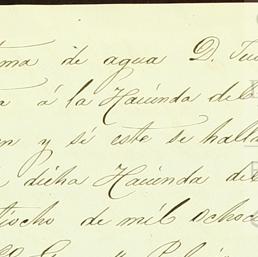 de agua D.
á la Hacienda de
y si este se halla
dicha Hacienda de
de mil ochoc